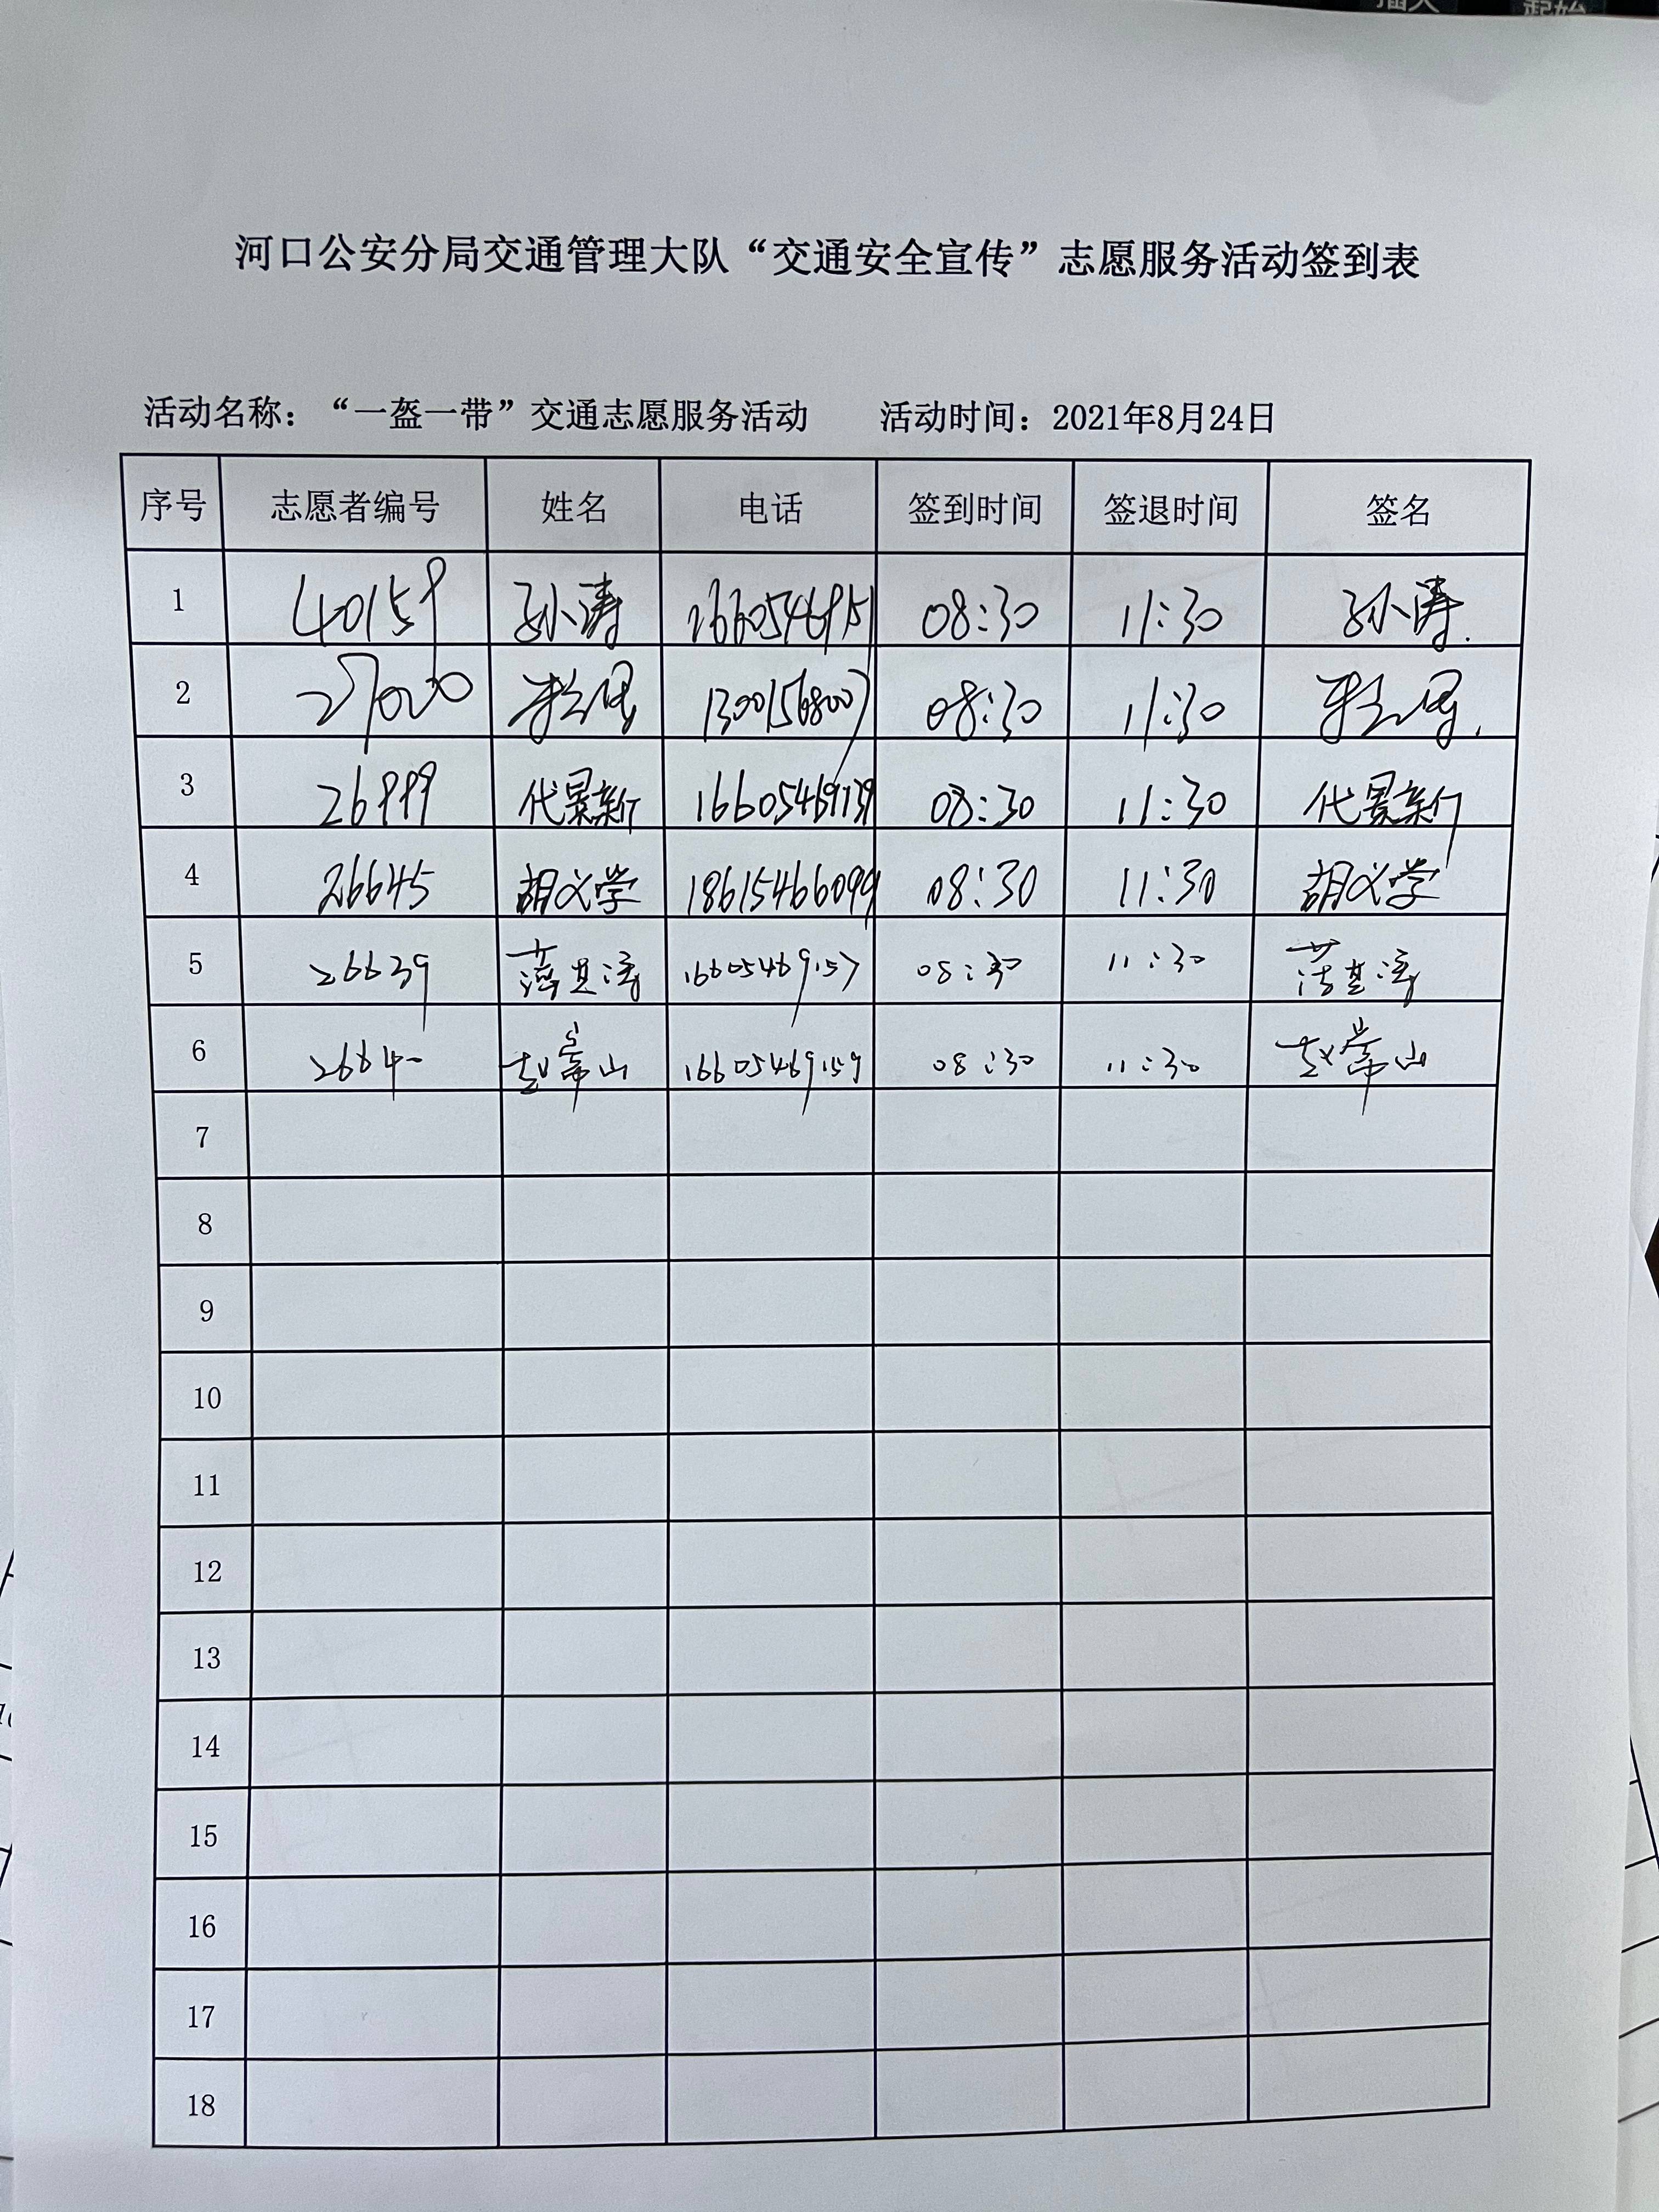 河口公安分局交通管理大队“交通安全宣传”志愿服务活动签到表
活动名称：“一盔一带”交通志愿服务活动 活动时间：2021年8月24日
序号 志愿者编号 姓名 电话 签到时间 签退时间 签名
1 40159 孙涛 08:30 11:30 孙涛
2 27020 13001568007 08:30 11:30
3 26999 代景新 16605469139 08:30 11:30 代景新
4 26645 胡义学 18615466099 08:30 11:30 胡义学
5 26639 16605469157 08:30 11:30
6 赵常山 16605469159 08:30 11:30 赵常山
7
8
9
10
11
12
13
14
15
16
17
18